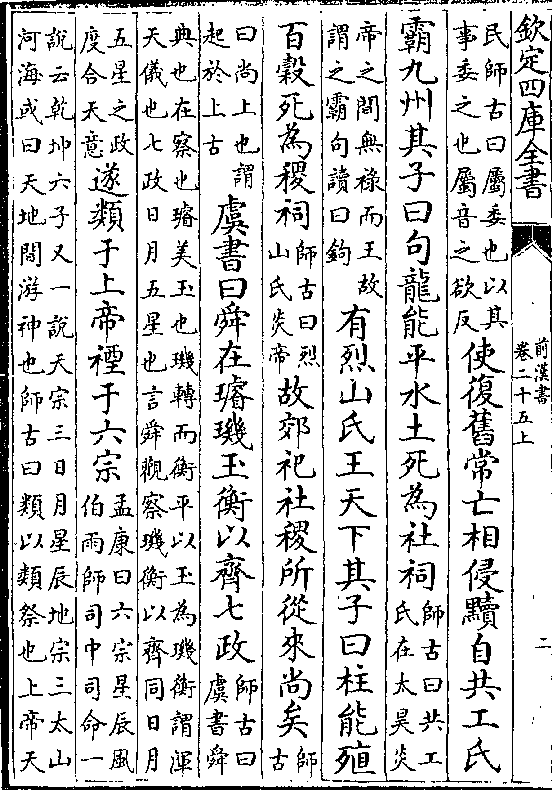 欽定四庫全書
前漢書
卷二十五上
二
民師古曰屬委也以其事委之也屬音之欲反使復舊常亡相侵黷自共工氏
霸九州其子曰句龍能平水土死為社祠師古曰共工氏在太昊炎
帝之間無祿而王故謂之霸句讀曰鉤有烈山氏王天下其子曰柱能殖
百穀死為稷祠師古曰烈山氏炎帝故郊祀社稷所從來尚矣師古
曰尚上也謂起於上古虞書曰舜在璿璣玉衡以齊七政師古曰虞書舜
典也在察也璿美玉也璣轉而衡平以玉為璣衡謂渾
天儀也七政日月五星也言舜觀察璣衡以齊同日月
五星之政度合天意遂類于上帝禋于六宗孟康曰六宗星辰風伯雨師司中司命一
說云乾坤六子又一說天宗三日月星辰地宗三太山
河海或曰天地間游神也師古曰類以類祭也上帝天